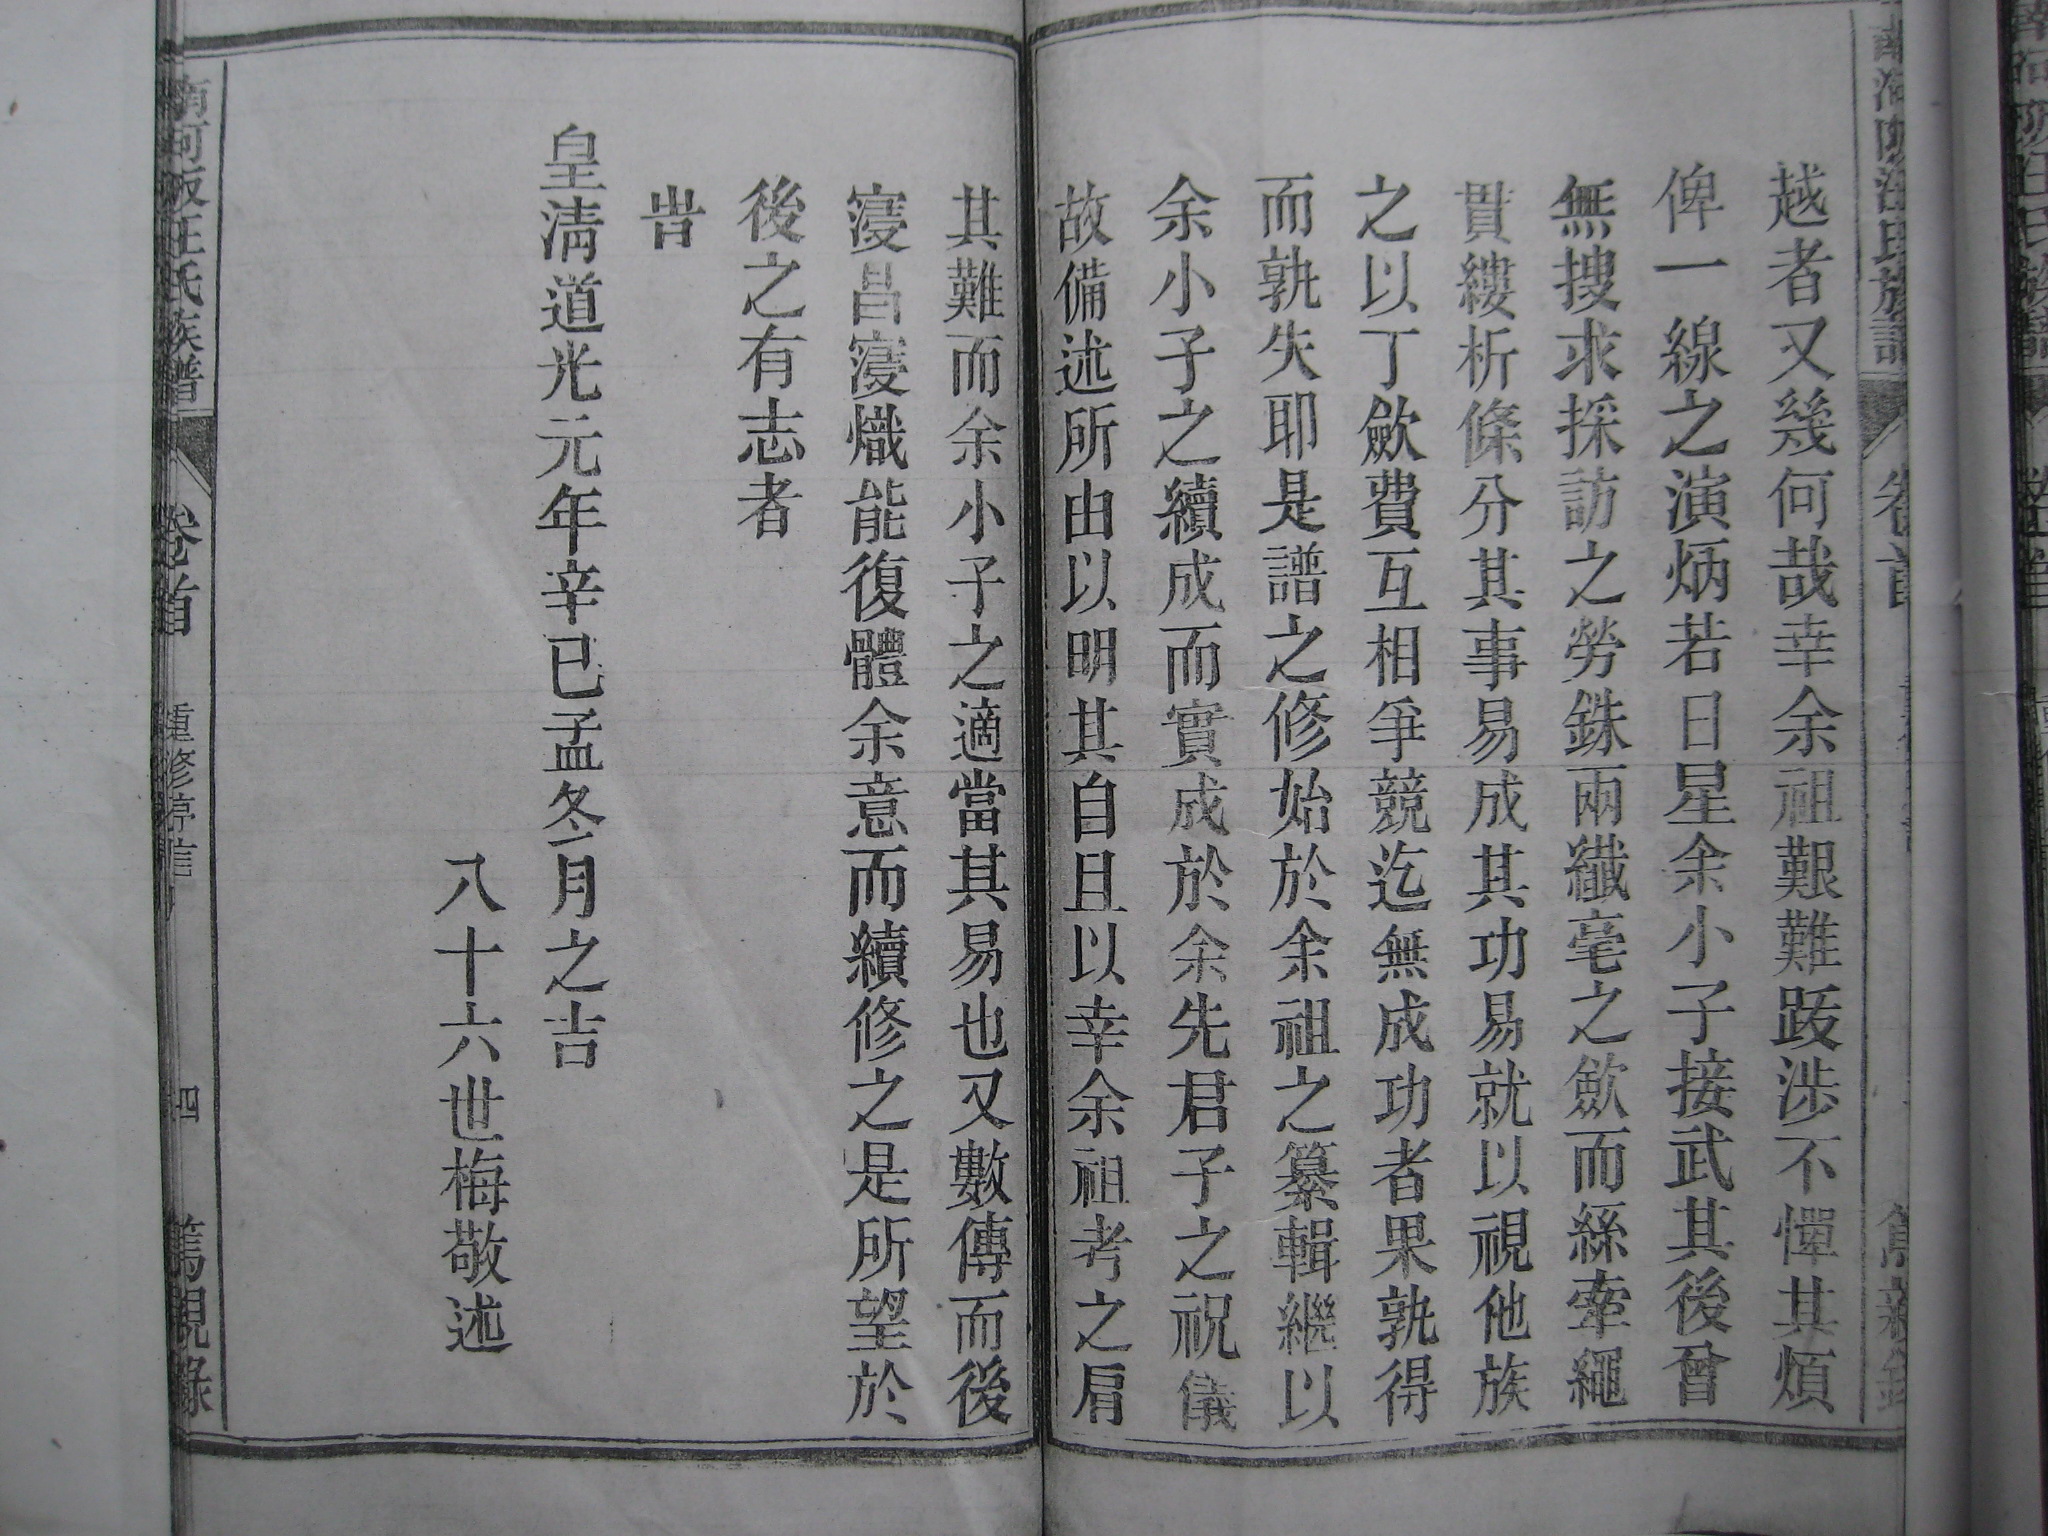 越者又幾何哉幸余祖艱難跋涉不憚其煩
俾一線之演炳若日星余小子接武其後曾
無搜求採訪之勞銖兩纖毫之歛而絲牽繩
貫縷析條分其事易成其功易就以視他族
之以丁歛費互相爭競迄無成功者果孰得
而孰失耶是譜之修始於余祖之纂輯繼以
余小子之續成而實成於余先君子之祝儀
故備述所由以明其自且以幸余祖考之肩
其難而余小子之適當其易也又數傳而後
寖昌寖熾能復體余意而續修之是所望於
後之有志者
旹
皇清道光元年辛巳孟冬月之吉
八十六世梅敬述
南河阪汪氏族譜
卷首
四